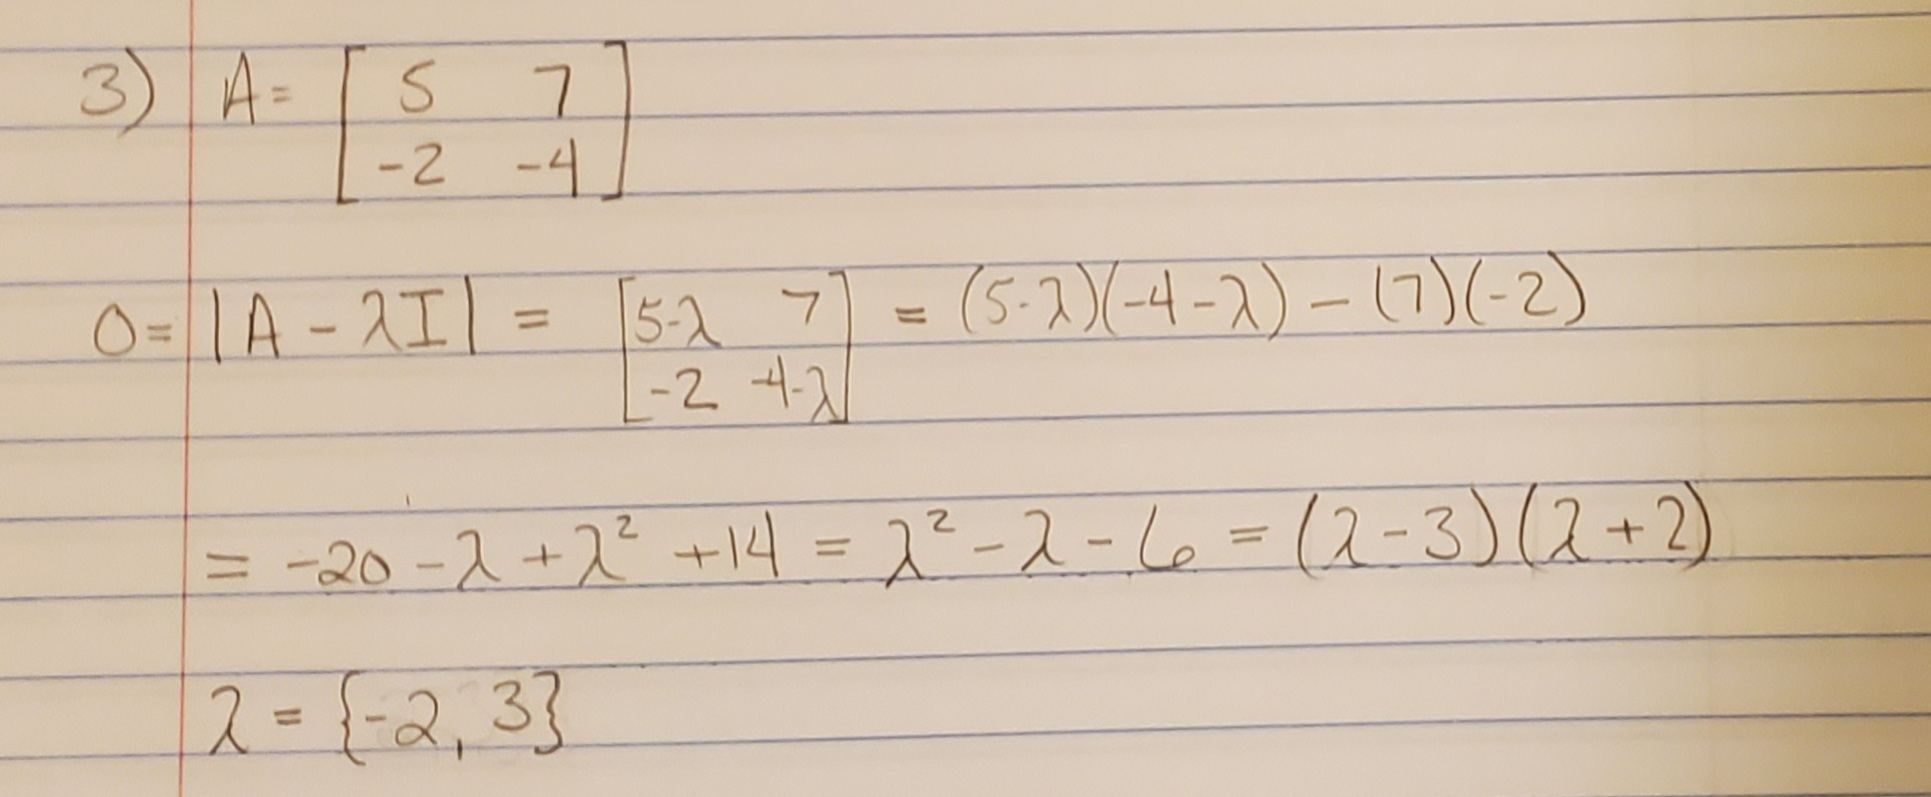 3) A = [ 5 7
-2 -4 ]
0 = |A - λI| = [ 5-λ 7 = (5-λ)(-4-λ) - (7)(-2)
-2 -4-λ ]
= -20 - λ + λ² + 14 = λ² - λ - 6 = (λ - 3)(λ + 2)
λ = {-2, 3}